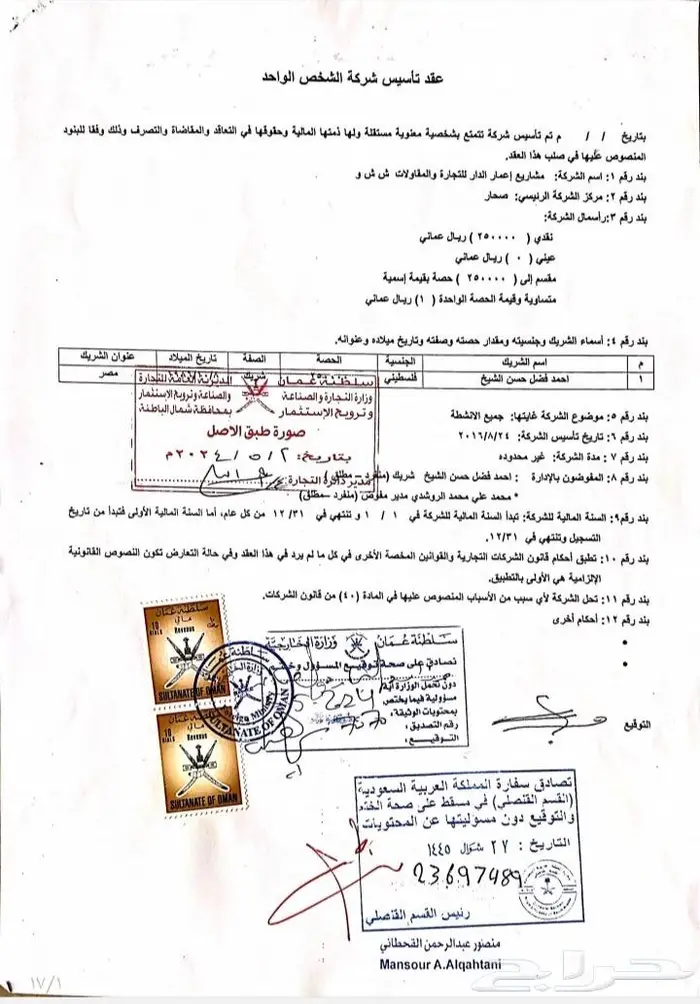 عقد تأسيس شركة الشخص الواحد
بتاريخ / / م تم تأسيس شركة تتمتع بشخصية معنوية مستقلة ولها ذمتها المالية وحقوقها في التعاقد والمقاضاة والتصرف وذلك وفقا للبنود
المنصوص عليها في صلب هذا العقد.
بند رقم ١: اسم الشركة: مشاريع إعمار الدار للتجارة والمقاولات ش ش و
بند رقم ٢: مركز الشركة الرئيسي: صحار
بند رقم ٣: رأسمال الشركة:
نقدي ( ٢٥٠٠٠٠ ) ريال عماني
عيني ( ٠ ) ريال عماني
مقسم إلى ( ٢٥٠٠٠٠ ) حصة بقيمة إسمية
متساوية وقيمة الحصة الواحدة ( ١ ) ريال عماني
بند رقم ٤: أسماء الشريك وجنسيته ومقدار حصته وصفته وتاريخ ميلاده وعنوانه.
م اسم الشريك الجنسية الحصة الصفة تاريخ الميلاد عنوان الشريك
١ احمد فضل حسن الشيخ فلسطيني شريك مصر
سلطنة عمان
وزارة التجارة والصناعة
وترويج الإستثمار
المديرية العامة للتجارة
والصناعة وترويج الإستثمار
بمحافظة شمال الباطنة
صورة طبق الاصل
بتاريخ: ٢/٥/٢٠٢٤م
مدير دائرة التجارة:
بند رقم ٥: موضوع الشركة غايتها: جميع الانشطة
بند رقم ٦: تاريخ تأسيس الشركة: ٢٠١٦/٨/٢٤
بند رقم ٧: مدة الشركة: غير محدوده
بند رقم ٨: المفوضون بالإدارة : احمد فضل حسن الشيخ شريك (منفرد – مطلق)
* محمد علي محمد الروشدي مدير مفوض (منفرد –مطلق)
بند رقم٩: السنة المالية للشركة: تبدأ السنة المالية للشركة في ١ / ١ و تنتهي في ١٢/٣١ من كل عام، أما السنة المالية الأولى فتبدأ من تاريخ
التسجيل وتنتهي في ١٢/٣١.
بند رقم ١٠: تطبق أحكام قانون الشركات التجارية والقوانين المخصة الأخرى في كل ما لم يرد في هذا العقد وفي حالة التعارض تكون النصوص القانونية
الإلزامية هي الأولى بالتطبيق.
بند رقم ١١: تحل الشركة لأي سبب من الأسباب المنصوص عليها في المادة (٤٠) من قانون الشركات.
بند رقم ١٢: أحكام أخرى
•
•
سلطنة عمان
وزارة الخارجية
تصادق على صحة توقيع المسؤول وختم
دون تحمل الوزارة أية
مسؤولية فيما يختص
بمحتويات الوثيقة،
رقم التصديق:
التوقيع:
SULTANATE OF OMAN
Revenue
SULTANATE OF OMAN
Revenue
SULTANATE OF OMAN
التوقيع
تصادق سفارة المملكة العربية السعودية
(القسم القنصلي) في مسقط على صحة الختم
والتوقيع دون مسؤوليتها عن المحتويات
التاريخ : ٢٧ شوال ١٤٤٥
23697489
رئيس القسم القنصلي
منصور عبدالرحمن القحطاني
Mansour A.Alqahtani
١٧/١
حراج